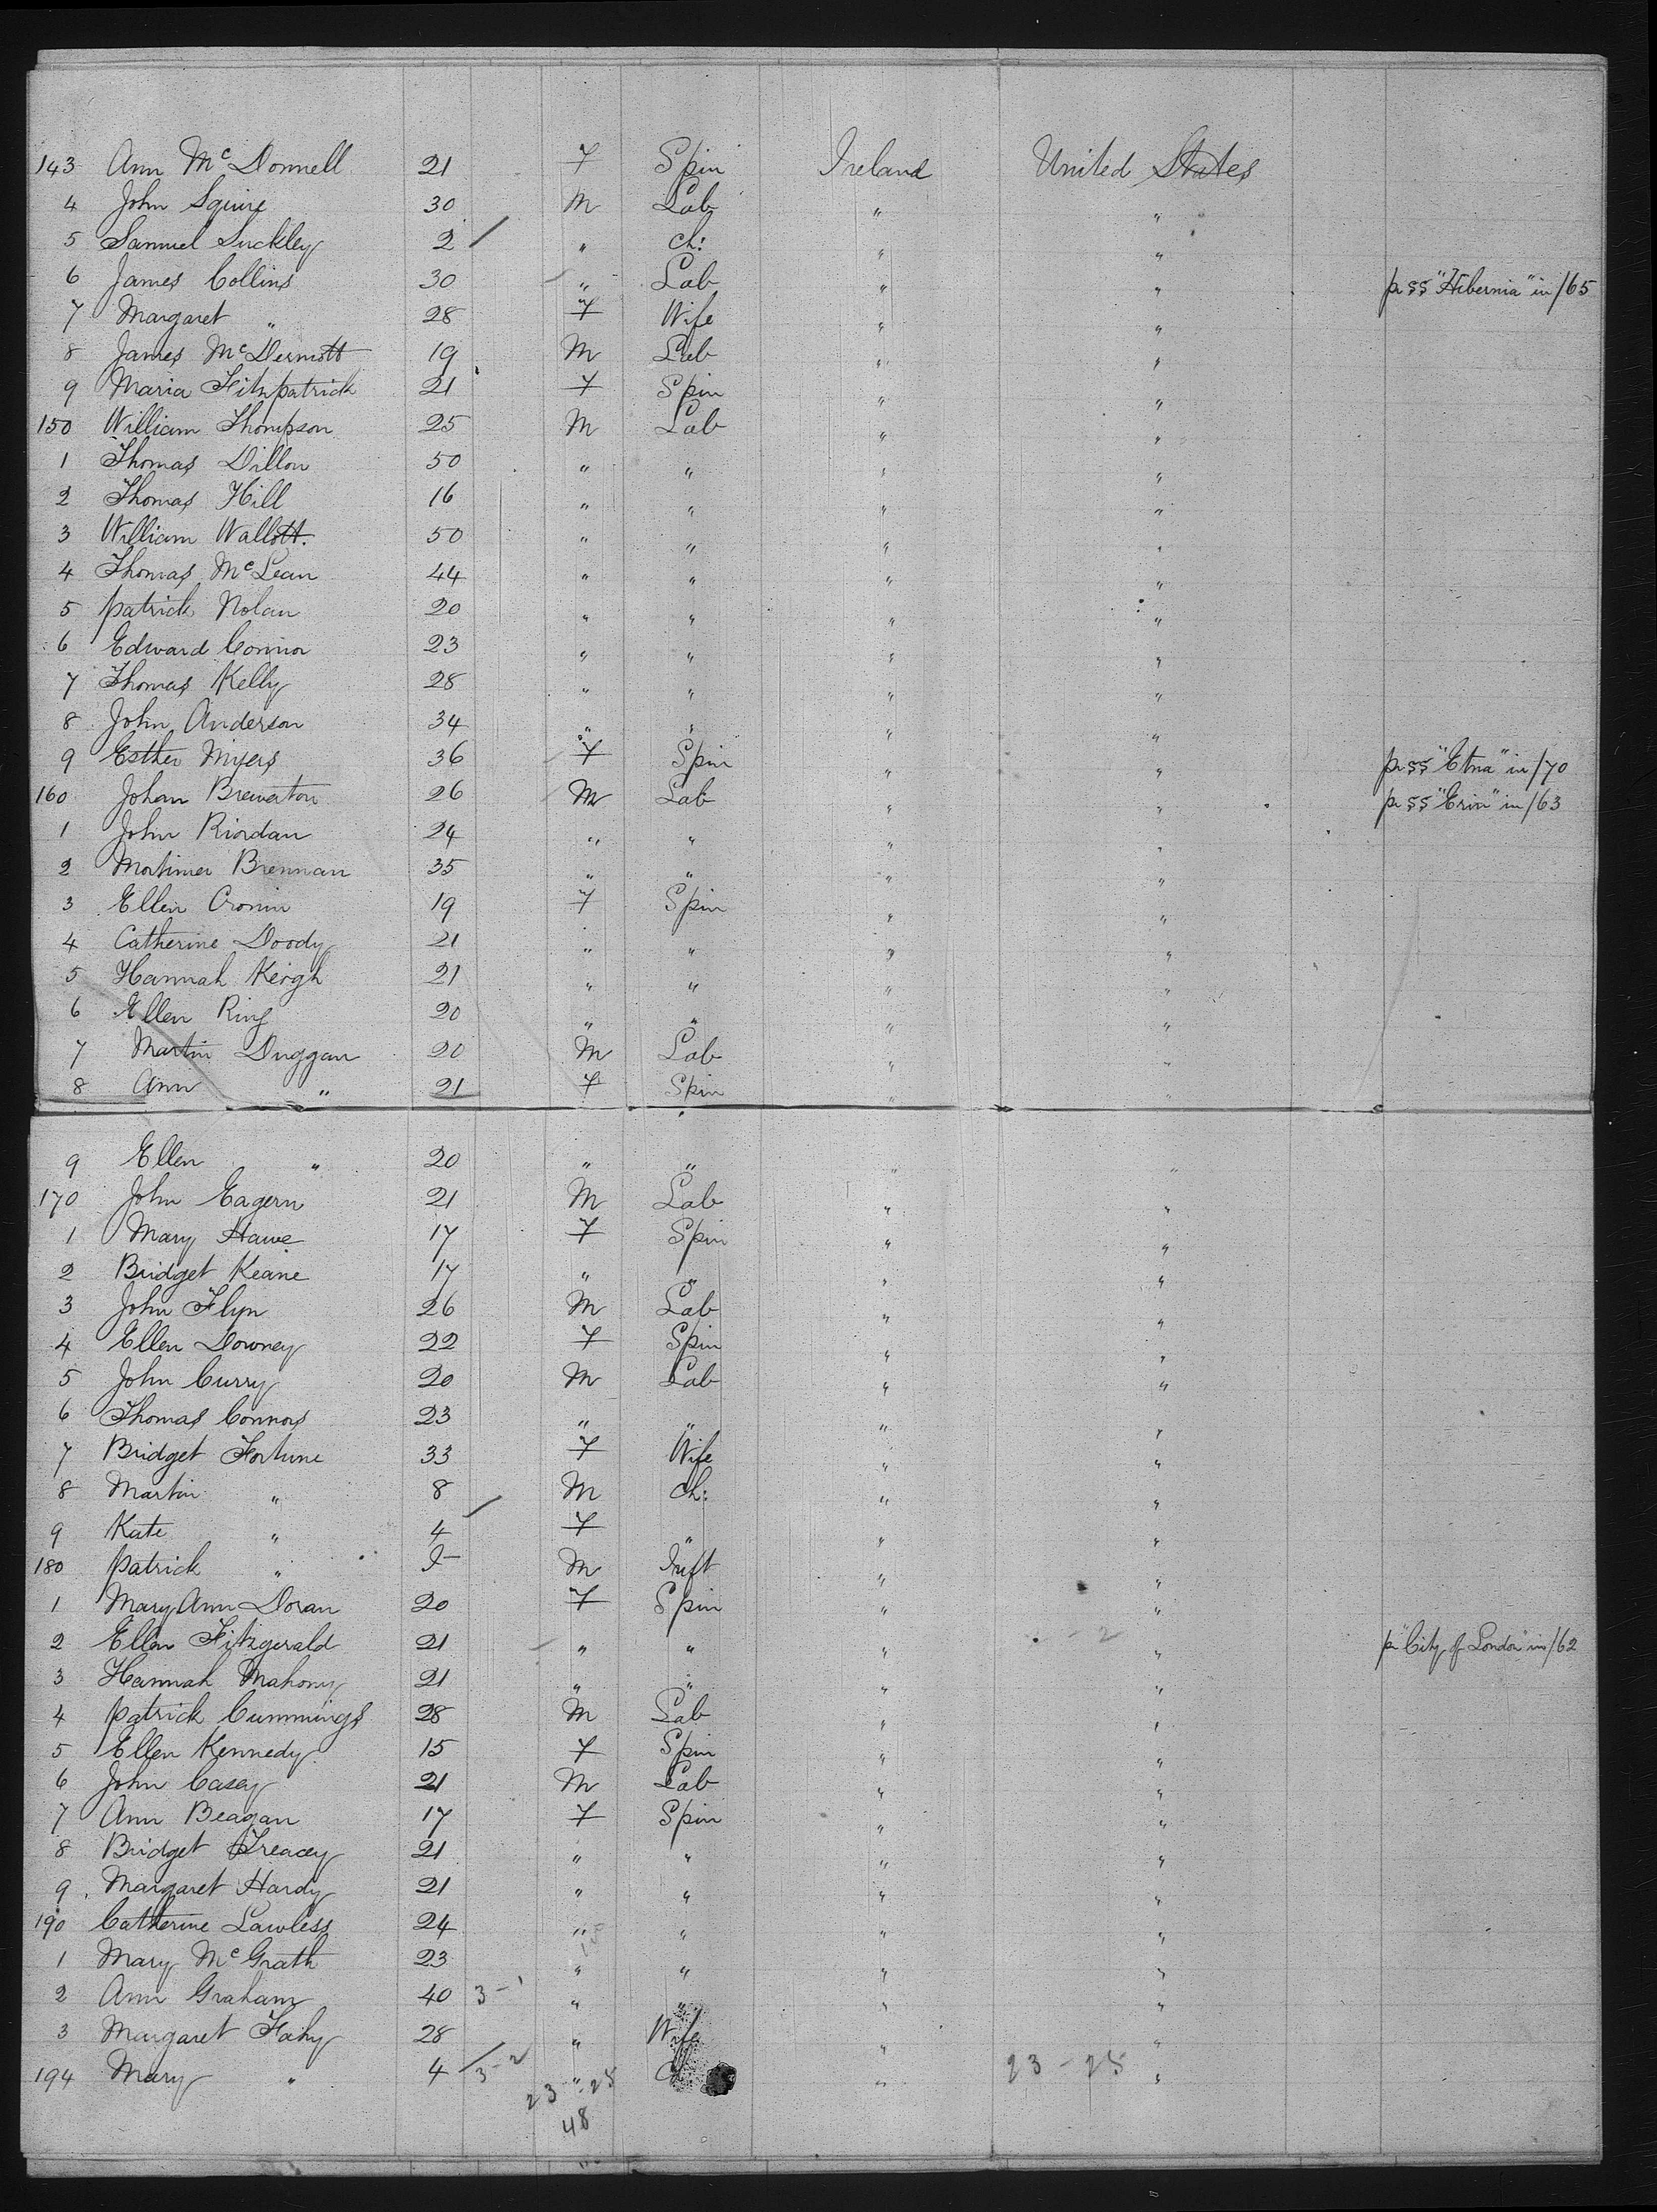 143 Ann McDonnell 21 F Spin Ireland United States
4 John Squire 30 M Lab " "
5 Samuel Suckley 2 / " Ch: " "
6 James Collins 30 " Lab " " pr SS "Hibernia" in /65
7 Margaret " 28 F Wife " "
8 James McDermott 19 M Lab " "
9 Maria Fitzpatrick 21 F Spin " "
150 William Thompson 25 M Lab " "
1 Thomas Dillon 50 " " " "
2 Thomas Hill 16 " " " "
3 William Wallott. 50 " " " "
4 Thomas McLean 44 " " " "
5 Patrick Nolan 20 " " " "
6 Edward Connor 23 " " " "
7 Thomas Kelly 28 " " " "
8 John Anderson 34 " " " "
9 Esther Myers 36 F Spin " " pr SS "Etna" in /70
160 Johan Brewerton 26 M Lab " " pr SS "Erin" in /63
1 John Riordan 24 " " " "
2 Mortimer Brennan 35 " " " "
3 Ellen Cronin 19 F Spin " "
4 Catherine Doody 21 " " " "
5 Hannah Keogh 21 " " " "
6 Ellen Ring 20 " " " "
7 Martin Duggan 20 M Lab " "
8 Ann " 21 F Spin " "
9 Ellen " 20 " " " "
170 John Eagern 21 M Lab " "
1 Mary Hawe 17 F Spin " "
2 Bridget Keane 17 " " " "
3 John Flyn 26 M Lab " "
4 Ellen Downey 22 F Spin " "
5 John Curry 20 M Lab " "
6 Thomas Connors 23 " " " "
7 Bridget Fortune 33 F Wife " "
8 Martin " 8 / M Ch: " "
9 Kate " 4 F " " "
180 Patrick " M Inft " "
1 Mary Ann Doran 20 F Spin " "
2 Ellen Fitzgerald 21 " " " - 2 " p "City of London" in /62
3 Hannah Mahony 21 " " " "
4 Patrick Cummings 28 M Lab " "
5 Ellen Kennedy 15 F Spin " "
6 John Casey 21 M Lab " "
7 Ann Beagan 17 F Spin " "
8 Bridget Treacey 21 " " " "
9 Margaret Hardy 21 " " " "
190 Catherine Lawless 24 " " " "
1 Mary McGrath 23 " " " "
2 Ann Graham 40 3-1 " " " "
3 Margaret Fahy 28 " Wife " "
194 Mary " 4 / 3-2 " Ch " 23 - 25 "
23 - 25
48